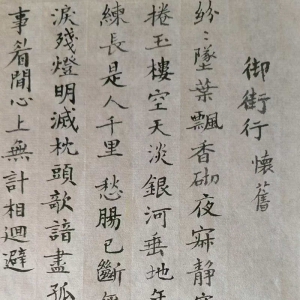 御街行 懷舊
紛〻墜葉飄香砌夜寂靜
捲玉樓空天淡銀河垂地年
練長是人千里愁腸已斷
淚殘燈明滅枕頭欹諳盡孤
事眉間心上無計相迴避